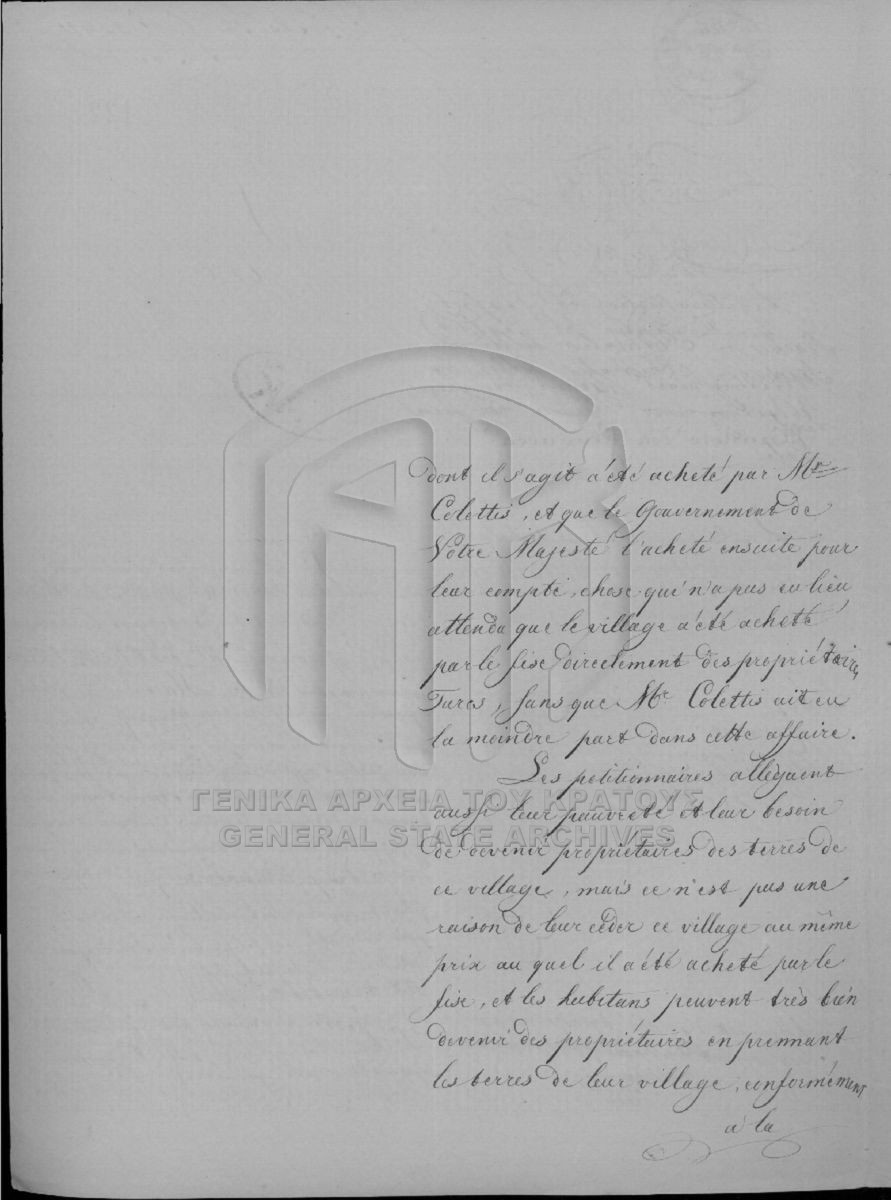 dont il s'agit a été acheté par Mr
Colettis, et que le Gouvernement de
Votre Majesté l'acheté ensuite pour
leur compte, chose qui n'a pas eu lieu
attendu que le village a été acheté
par le fisc directement des propriétaires
Turcs, sans que Mr Colettis ait eu
la moindre part dans cette affaire.
Les petitionnaires allèguent
ΓΕΝΙΚΑ ΑΡΧΕΙΑ ΤΟΥ ΚΡΑΤΟΥΣ
aussi leur pauvreté et leur besoin
GENERAL STATE ARCHIVES
de devenir propriétaires des terres de
ce village, mais ce n'est pas une
raison de leur céder ce village au même
prix au quel il a été acheté par le
fisc, et les habitans peuvent très bien
devenir des propriétaires en prennant
les terres de leur village, conformément
à la